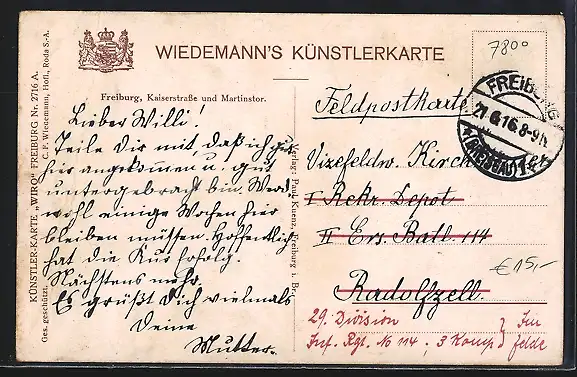 WIEDEMANN'S KÜNSTLERKARTE
7800
Freiburg, Kaiserstraße und Martinstor.
Lieber Willi!
Teile Dir mit, daß ich gut
hir angekommen u. gut
untergebracht bin, Werd
wohl einige Wochen hier
bleiben müssen. Hoffentlich
hat die Kur Erfolg.
Nächstens mehr.
Es grüßt Dich vielmals
Deine
Mutter.
KÜNSTLER-KARTE „WIRO" FREIBURG Nr. 2716 A.
Ges. geschützt. C. F. Wiedemann, Hofl., Roda S.-A.
Verlag: Paul Kuenz, Freiburg i. Br.
FREIBURG
21.6.16.8-9N.
(BREISGAU) 1
Feldpostkarte
Vizefeldw. Kirch
I Rekr. Depot
II Ers. Batl. 114
Radolfzell.
€15,-
29. Division
Inf. Rgt. No 114. 3 Komp
Im
felde